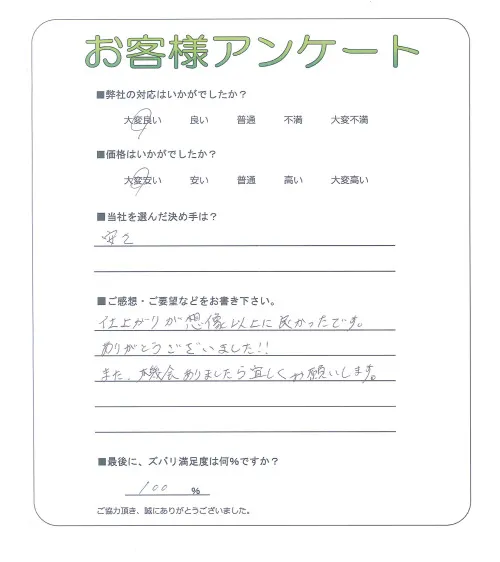 お客様アンケート
■弊社の対応はいかがでしたか？
大変良い 良い 普通 不満 大変不満
■価格はいかがでしたか？
大変安い 安い 普通 高い 大変高い
■当社を選んだ決め手は？
安さ
■ご感想・ご要望などをお書き下さい。
仕上がりが想像以上に良かったです。
ありがとうございました!!
また、機会ありましたら宜しくお願いします。
■最後に、ズバリ満足度は何％ですか？
100 %
ご協力頂き、誠にありがとうございました。